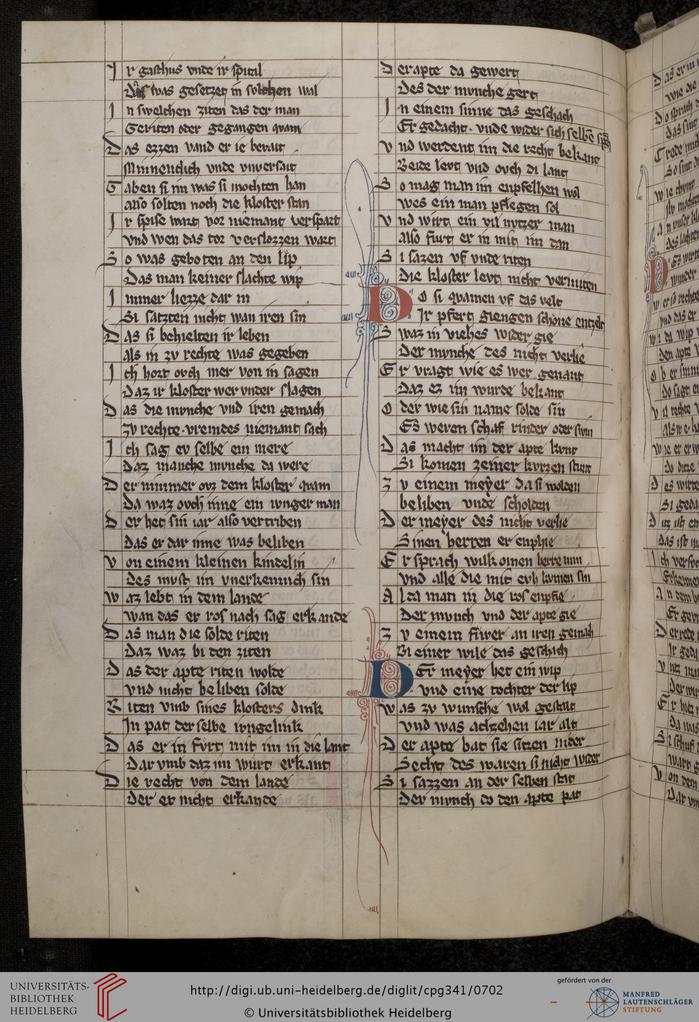 Ir gasthus vnde ir spital
Daz was gesetzet in solchen wal
In swelchen ziten das der man
Geriten oder gegangen quam
Das ezzen wand er ie berait
Minnenclich vnde vnverSait
Gaben si im was si mochten han
also solten noch die kloster stan
Ir spise wart vor niemant verspart
vnd wen das tor verslozzen wart
So was geboten an den lip
Das man keiner slachte wip
Immer liezze dar in
Si satzten nicht wan iren sin
Das si behielten ir leben
als in zv rechte was gegeben
Ich hort ovch mer von in sagen
Daz ir kloster wer vnder slagen
Das die mvnche vnd iren gemach
zv rechte vremdes niemant sach
Ich sag ev selbe ein mere
Daz manche mvnche da were
Der nimmer ovz dem kloster quam
Da waz ovch inne ein ivnger man
Der het sin iar also vertriben
Das er dar inne was beliben
Von einem kleinen kindelin
Des mvst im vnerkennich sin
Waz lebt in dem lande
wan das er ros nach sag erkande
Das man die solde riten
Daz waz bi den ziten
Das der apte riten wolde
vnd nicht beliben solde
Riten vmb sines klosters dink
In pat der selbe ivngelink
Das er in fvrt mit im in die lant
Dar vmb daz im wurt erkant
Die recht von dem lande
Der er nicht erkande
Der apte da gewert
Des der mvnche gert
In einem sinne das geschach
Er gedacht vnde wider sich selbe sprach
Vnd werdent im die recht bekant
Beide levt vnd ovch di lant
So mag man im enpfelhen wol
wes ein man pflegen sol
Vnd wirt ein vil nvtzer man
also fvrt er in mit im dan
Si sazen vf vnde riten
Die kloster levt nicht vermiten
Do si quamen vf das velt
Ir pfert giengen schone enzelt
Swaz in viehes wider gie
Der mvnche des nicht verlie
Er vragt wie es wer genant
Daz ez im wurde bekant
Oder wie sin name solde sin
Es weren schaf rinder oder swin
Das macht im der apte kvnt
Si komen zeiner kvrzen stunt
Zv einem meyer da si wolden
beliben vnde scholden
Der meyer des nicht verlie
Sinen herren er enphie
Er sprach wilkomen herre min
vnd alle die mit evh kvmen sin
Alda man in die ros enpfie
Der mvnch vnd der apte gie
Zv einem fiwer an iren gemach
Bi einer wile das geschach
Der meyer het ein wip
vnd eine tochter der lip
Was zv wunsche wol gestalt
vnd was achzehen iar alt
Der apte bat sie sitzen nider
Secht des waren si nicht wider
Si sazzen an der selben stat
Der mvnch do den apte pat
UNIVERSITÄTS-
BIBLIOTHEK
HEIDELBERG
http://digi.ub.uni-heidelberg.de/diglit/cpg341/0702
© Universitätsbibliothek Heidelberg
gefördert von der
MANFRED
LAUTENSCHLÄGER
STIFTUNG